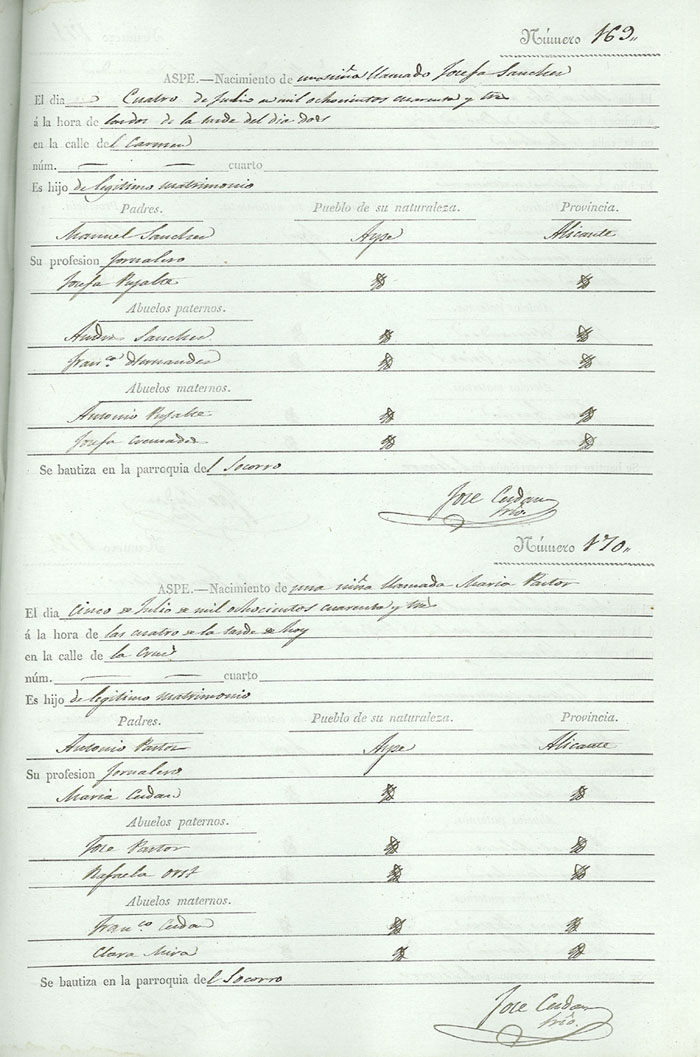 Número 169
ASPE.—Nacimiento de una niña llamado Josefa Sanchez
El dia Cuatro de Julio de mil ochocientos cuarenta y tres
á la hora de las dos de la tarde del dia dos
en la calle del Carmen
núm. — — cuarto
Es hijo de legitimo matrimonio
Padres. Pueblo de su naturaleza. Provincia.
Manuel Sanchez Aspe Alicante
Su profesion Jornalero
Josefa
Abuelos paternos.
Andres Sanchez
Franco. Hernandez
Abuelos maternos.
Antonio
Josefa Cremades
Se bautiza en la parroquia del Socorro
Jose Cerdan
Srio.
Número 170
ASPE.—Nacimiento de una niña llamada Maria Pastor
El dia Cinco de Julio de mil ochocientos cuarenta y tres
á la hora de las cuatro de la tarde de hoy
en la calle de la Cruz
núm. — — cuarto
Es hijo de legitimo matrimonio
Padres. Pueblo de su naturaleza. Provincia.
Antonio Pastor Aspe Alicante
Su profesion Jornalero
Maria Cerdan
Abuelos paternos.
Jose Pastor
Rafaela
Abuelos maternos.
Franco. Cerdan
Clara Mira
Se bautiza en la parroquia del Socorro
Jose Cerdan
Srio.